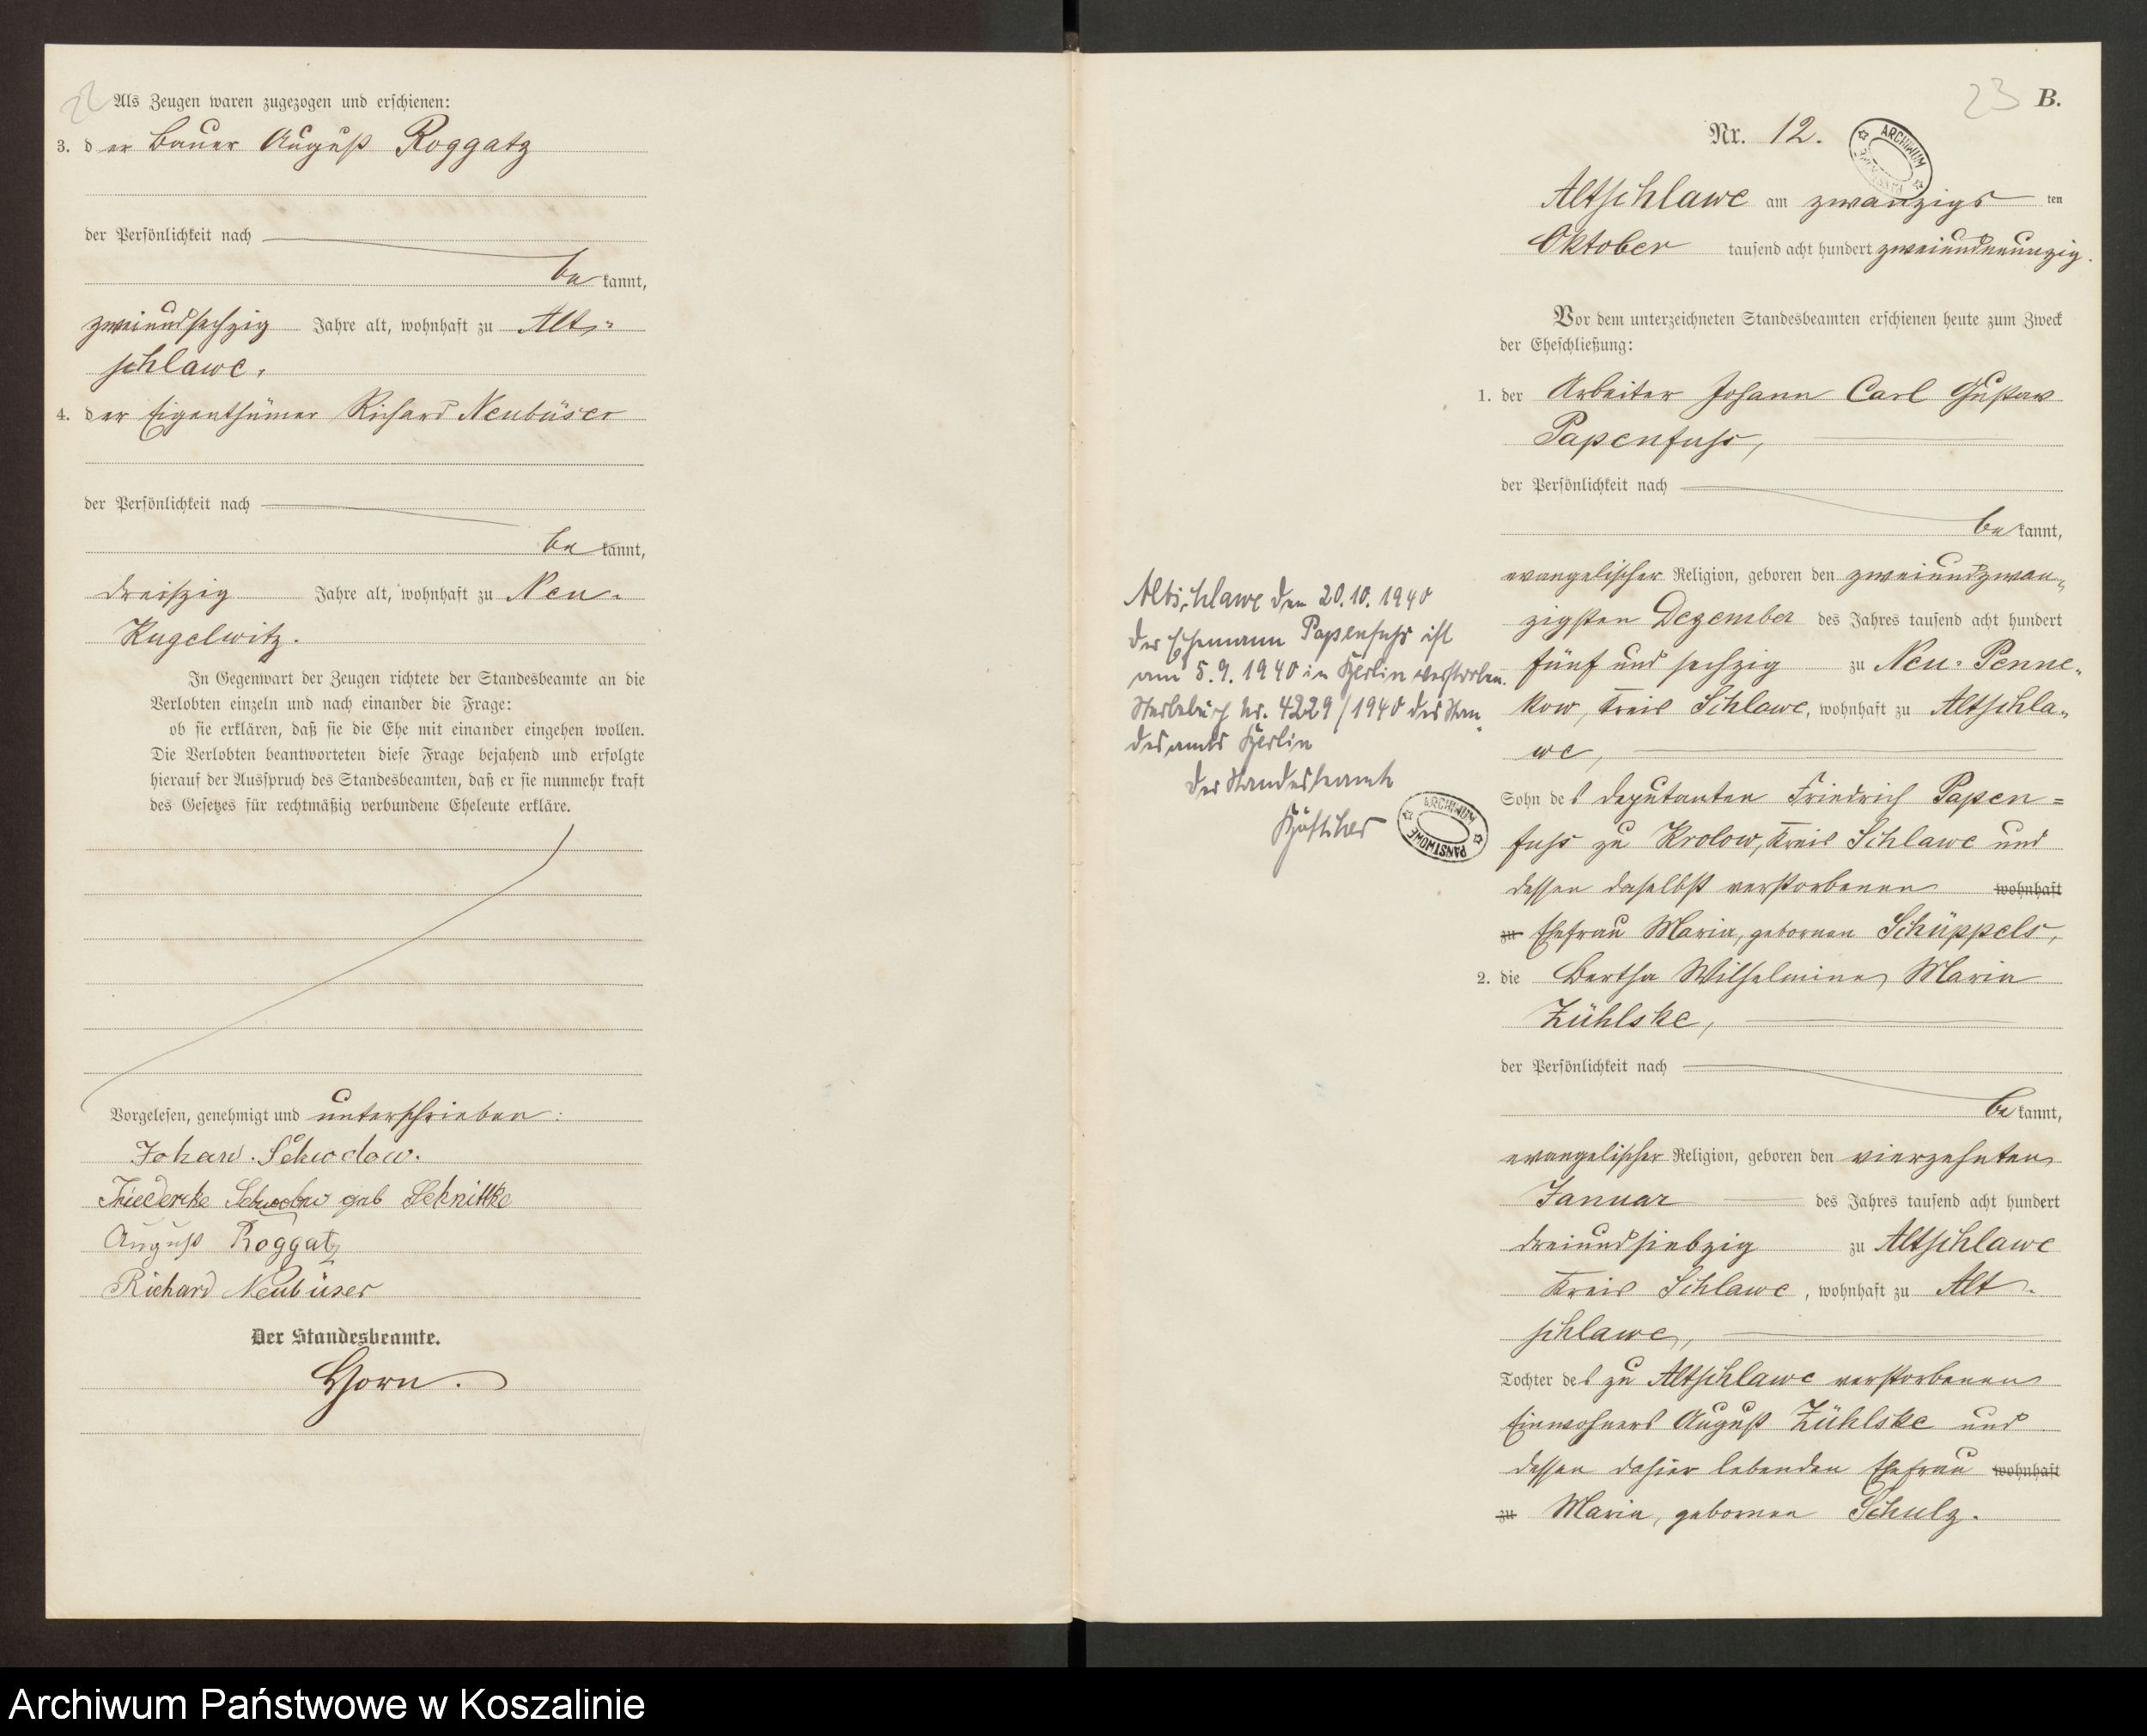 22
Als Zeugen waren zugezogen und erschienen:
3. der Bauer August Roggatz
der Persönlichkeit nach
be kannt,
zweiundsechzig Jahre alt, wohnhaft zu Alt-
schlawe.
4. der Eigenthümer Richard Neubüser
der Persönlichkeit nach
be kannt,
dreißzig Jahre alt, wohnhaft zu Neu-
Kugelwitz.
In Gegenwart der Zeugen richtete der Standesbeamte an die
Verlobten einzeln und nach einander die Frage:
ob sie erklären, daß sie die Ehe mit einander eingehen wollen.
Die Verlobten beantworteten diese Frage bejahend und erfolgte
hierauf der Ausspruch des Standesbeamten, daß er sie nunmehr kraft
des Gesetzes für rechtmäßig verbundene Eheleute erkläre.
Vorgelesen, genehmigt und unterschrieben:
Johann Schwolow.
Friedericke Schwolow geb Schnittke
August Roggatz
Richard Neubüser
Der Standesbeamte.
Horn.
23 B.
Nr. 12.
ARCHIWUM PAŃSTWOWE
Altschlawe am zwanzigsten
Oktober tausend acht hundert zweiundneunzig.
Vor dem unterzeichneten Standesbeamten erschienen heute zum Zweck
der Eheschließung:
1. der Arbeiter Johann Carl Gustav
Papenfuhs,
der Persönlichkeit nach
be kannt,
evangelischer Religion, geboren den zweiundzwan-
zigsten Dezember des Jahres tausend acht hundert
fünf und sechzig zu Neu-Penne-
kow, Kreis Schlawe, wohnhaft zu Altschla-
we,
Sohn des Deputanten Friedrich Papen=
fuhs zu Krolow, Kreis Schlawe und
dessen daselbst verstorbenen wohnhaft
zu Ehefrau Maria, gebornen Schüppels,
2. die Bertha Wilhelmine Maria
Zühlske,
der Persönlichkeit nach
be kannt,
evangelischer Religion, geboren den vierzehnten
Januar des Jahres tausend acht hundert
dreiundsiebzig zu Altschlawe
Kreis Schlawe, wohnhaft zu Alt-
schlawe,
Tochter des zu Altschlawe verstorbenen
Einwohners August Zühlske und
dessen dahier lebenden Ehefrau wohnhaft
zu Maria, gebornen Schulz.
Altschlawe den 20.10.1940
Der Ehemann Papenfuhs ist
am 5.9.1940 in Berlin verstorben.
Sterbebuch Nr. 4229/1940 des Stan-
desamts Berlin
Der Standesbeamte
Böttcher
ARCHIWUM PAŃSTWOWE
Archiwum Państwowe w Koszalinie